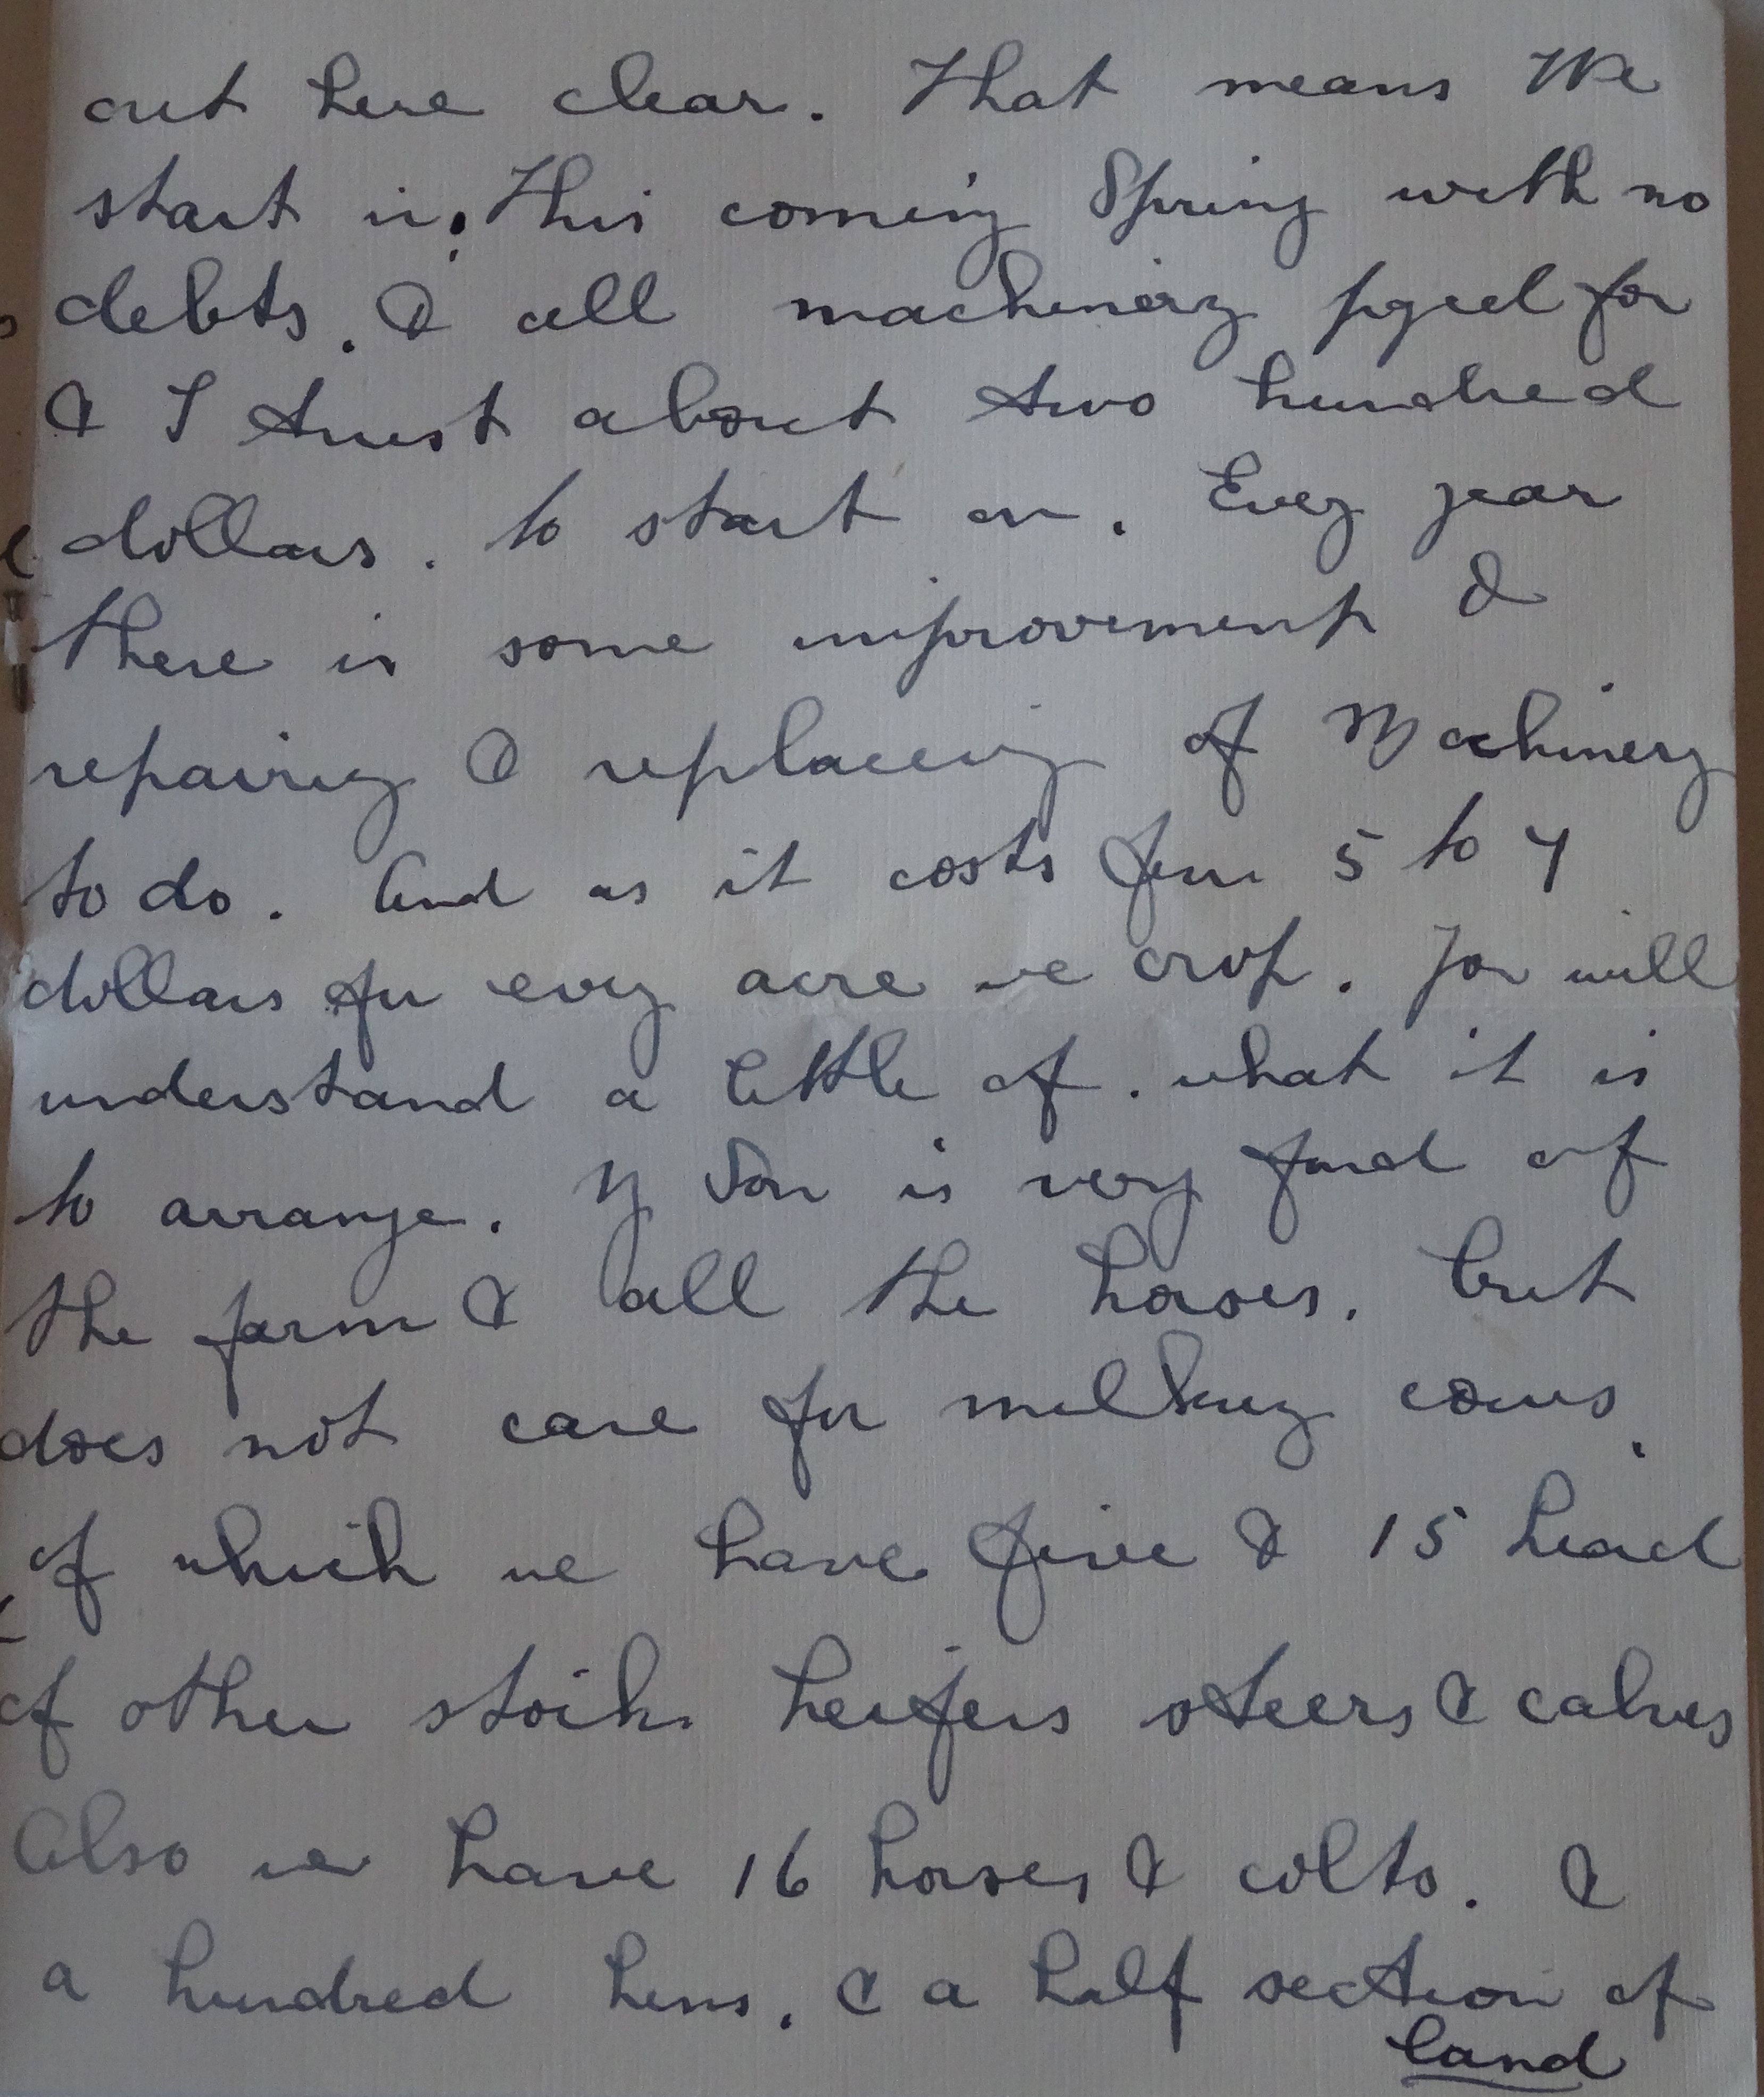 out here clear. That means We
start in. This coming Spring with no
debts. & all machinery payed for
& I trust about two hundred
dollars. to start on. Every year
there is some improvement &
repairing & replaceing of Machinery
to do. And as it costs from 5 to 7
dollars for every acre we crop. You will
understand a little of. what it is
to arrange. My Son is very fond of
the farm & all the horses. but
does not care for milking cows.
of which we have five & 15 head
of other stock heifers steers & calves
Also we have 16 horses & colts. &
a hundred hens. & a half section of
land